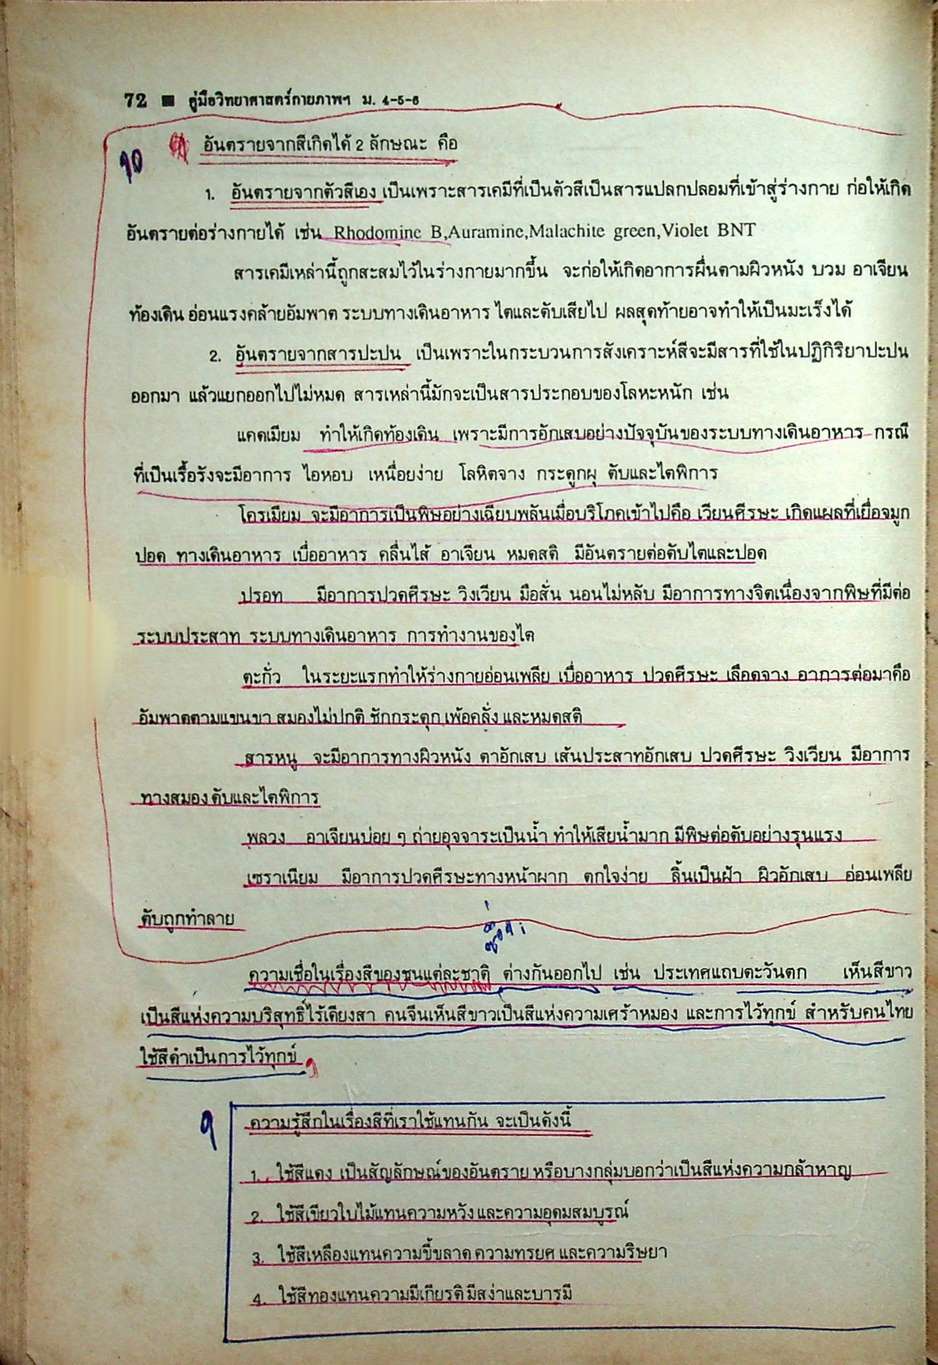 72 ■ คู่มือวิทยาศาสตร์กายภาพฯ ม. 4-5-6
อันตรายจากสีเกิดได้ 2 ลักษณะ คือ
1. อันตรายจากตัวสีเอง เป็นเพราะสารเคมีที่เป็นตัวสีเป็นสารแปลกปลอมที่เข้าสู่ร่างกาย ก่อให้เกิด
อันตรายต่อร่างกายได้ เช่น Rhodomine B,Auramine,Malachite green,Violet BNT
สารเคมีเหล่านี้ถูกสะสมไว้ในร่างกายมากขึ้น จะก่อให้เกิดอาการผื่นตามผิวหนัง บวม อาเจียน
ท้องเดิน อ่อนแรงคล้ายอัมพาต ระบบทางเดินอาหาร ไตและตับเสียไป ผลสุดท้ายอาจทำให้เป็นมะเร็งได้
2. อันตรายจากสารปะปน เป็นเพราะในกระบวนการสังเคราะห์สีจะมีสารที่ใช้ในปฏิกิริยาปะปน
ออกมา แล้วแยกออกไปไม่หมด สารเหล่านี้มักจะเป็นสารประกอบของโลหะหนัก เช่น
แคดเมียม ทำให้เกิดท้องเดิน เพราะมีการอักเสบอย่างปัจจุบันของระบบทางเดินอาหาร กรณี
ที่เป็นเรื้อรังจะมีอาการ ไอหอบ เหนื่อยง่าย โลหิตจาง กระดูกผุ ตับและไตพิการ
โครเมียม จะมีอาการเป็นพิษอย่างเฉียบพลันเมื่อบริโภคเข้าไปคือ เวียนศีรษะ เกิดแผลที่เยื่อจมูก
ปอด ทางเดินอาหาร เบื่ออาหาร คลื่นไส้ อาเจียน หมดสติ มีอันตรายต่อตับไตและปอด
ปรอท มีอาการปวดศีรษะ วิงเวียน มือสั่น นอนไม่หลับ มีอาการทางจิตเนื่องจากพิษที่มีต่อ
ระบบประสาท ระบบทางเดินอาหาร การทำงานของไต
ตะกั่ว ในระยะแรกทำให้ร่างกายอ่อนเพลีย เบื่ออาหาร ปวดศีรษะ เลือดจาง อาการต่อมาคือ
อัมพาตตามแขนขา สมองไม่ปกติ ชักกระตุก เพ้อคลั่ง และหมดสติ
สารหนู จะมีอาการทางผิวหนัง ตาอักเสบ เส้นประสาทอักเสบ ปวดศีรษะ วิงเวียน มีอาการ
ทางสมอง ตับและไตพิการ
พลวง อาเจียนบ่อย ๆ ถ่ายอุจจาระเป็นน้ำ ทำให้เสียน้ำมาก มีพิษต่อตับอย่างรุนแรง
เซราเนียม มีอาการปวดศีรษะทางหน้าผาก ตกใจง่าย ลิ้นเป็นฝ้า ผิวอักเสบ อ่อนเพลีย
ตับถูกทำลาย
ความเชื่อในเรื่องสีของชนแต่ละชาติ ต่างกันออกไป เช่น ประเทศแถบตะวันตก เห็นสีขาว
เป็นสีแห่งความบริสุทธิ์ไร้เดียงสา คนจีนเห็นสีขาวเป็นสีแห่งความเศร้าหมอง และการไว้ทุกข์ สำหรับคนไทย
ใช้สีดำเป็นการไว้ทุกข์
ความรู้สึกในเรื่องสีที่เราใช้แทนกัน จะเป็นดังนี้
1. ใช้สีแดง เป็นสัญลักษณ์ของอันตราย หรือบางกลุ่มบอกว่าเป็นสีแห่งความกล้าหาญ
2. ใช้สีเขียวใบไม้แทนความหวัง และความอุดมสมบูรณ์
3. ใช้สีเหลืองแทนความขี้ขลาด ความทรยศ และความริษยา
4. ใช้สีทองแทนความมีเกียรติ มีสง่าและบารมี